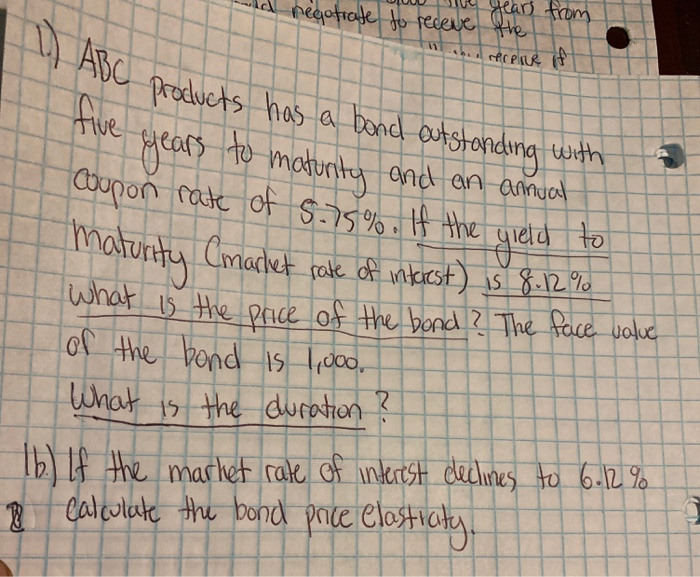 negotiate to receve the
years from
receive if
1.) ABC products has a bond outstanding with
five years to maturity and an annual
coupon rate of 5.75%. If the yield to
maturity (market rate of interest) is 8.12%
what is the price of the bond? The face value
of the bond is 1,000.
What is the duration?
1b.) If the market rate of interest declines to 6.12%
calculate the bond price elasticity.